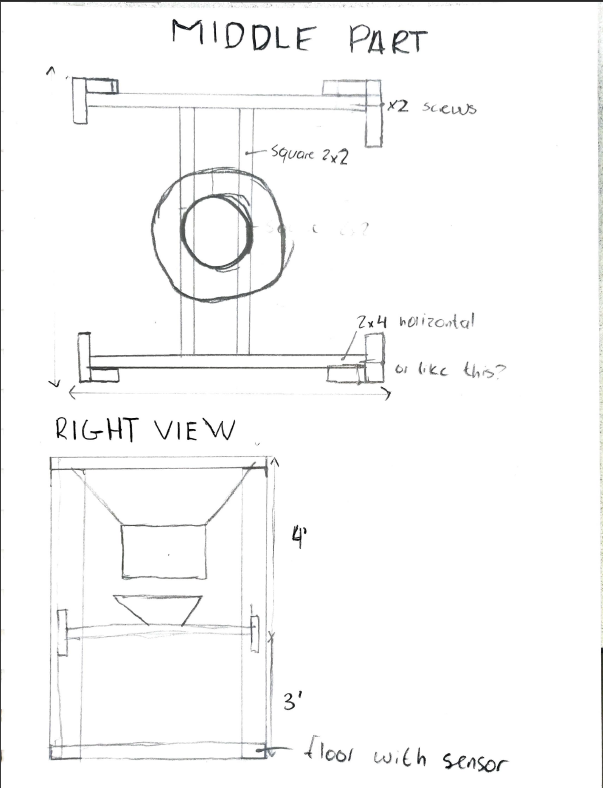 MIDDLE PART
x2 scews
square 2x2
2x4 horizontal
or like this?
RIGHT VIEW
4'
3'
floor with sensor